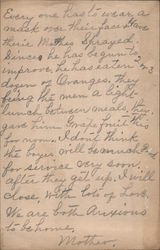 Every one has to wear a
mask over their faces & have
their Mouths Sprayed.
Since he has begun to
improve, he has eaten 2 or 3
dozen of Oranges, they
bring the men a light
lunch between meals, they
gave him Grape fruit this
for noon. I don't think
the boys will be much
for service very soon
after they get up. I will
close, with lots of Love.
We are both Anxious
to be home.
Mother.